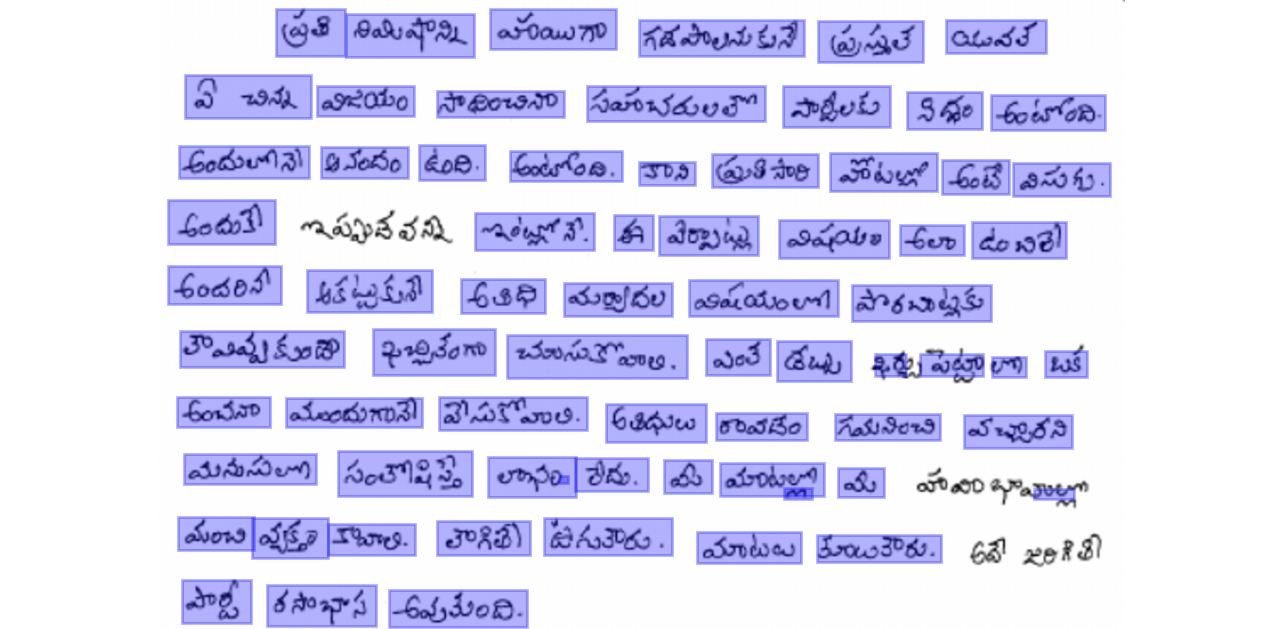 ప్రతి నిమిషాన్ని హాయిగా గడపాలనుకునే ప్రస్తుత యువత
ఏ చిన్న విజయం సాధించినా సహచరులతో పార్టీలకు సిద్ధం అంటోంది.
అందులోనే ఆనందం ఉంది. అంటోంది. కాని ప్రతిసారి హోటల్లో అంటే విసుగు.
అందుకే ఇప్పుడివన్ని ఇంట్లోనే. ఈ ఏర్పాట్లు విషయం ఎలా ఉంచితే
అందరినీ ఆకట్టుకునే అతిథి మర్యాదల విషయంలో పొరబాట్లకు
తావివ్వకుండా ఖచ్చితంగా చూసుకోవాలి. ఎంత డబ్బు ఖర్చు పెట్టాలో ఒక
అంచనా ముందుగానే వేసుకోవాలి. అతిథులు రావడం గమనించి వచ్చారని
మనసులో సంతోషిస్తే లాభం లేదు. మీ మాటల్లో మీ హావభావాల్లో
మంచి వ్యక్తం కావాలి. తాగితే ఊగుతారు. మాటలు తూలుతారు. అదే జరిగితే
పార్టీ రసాభాస అవుతుంది.